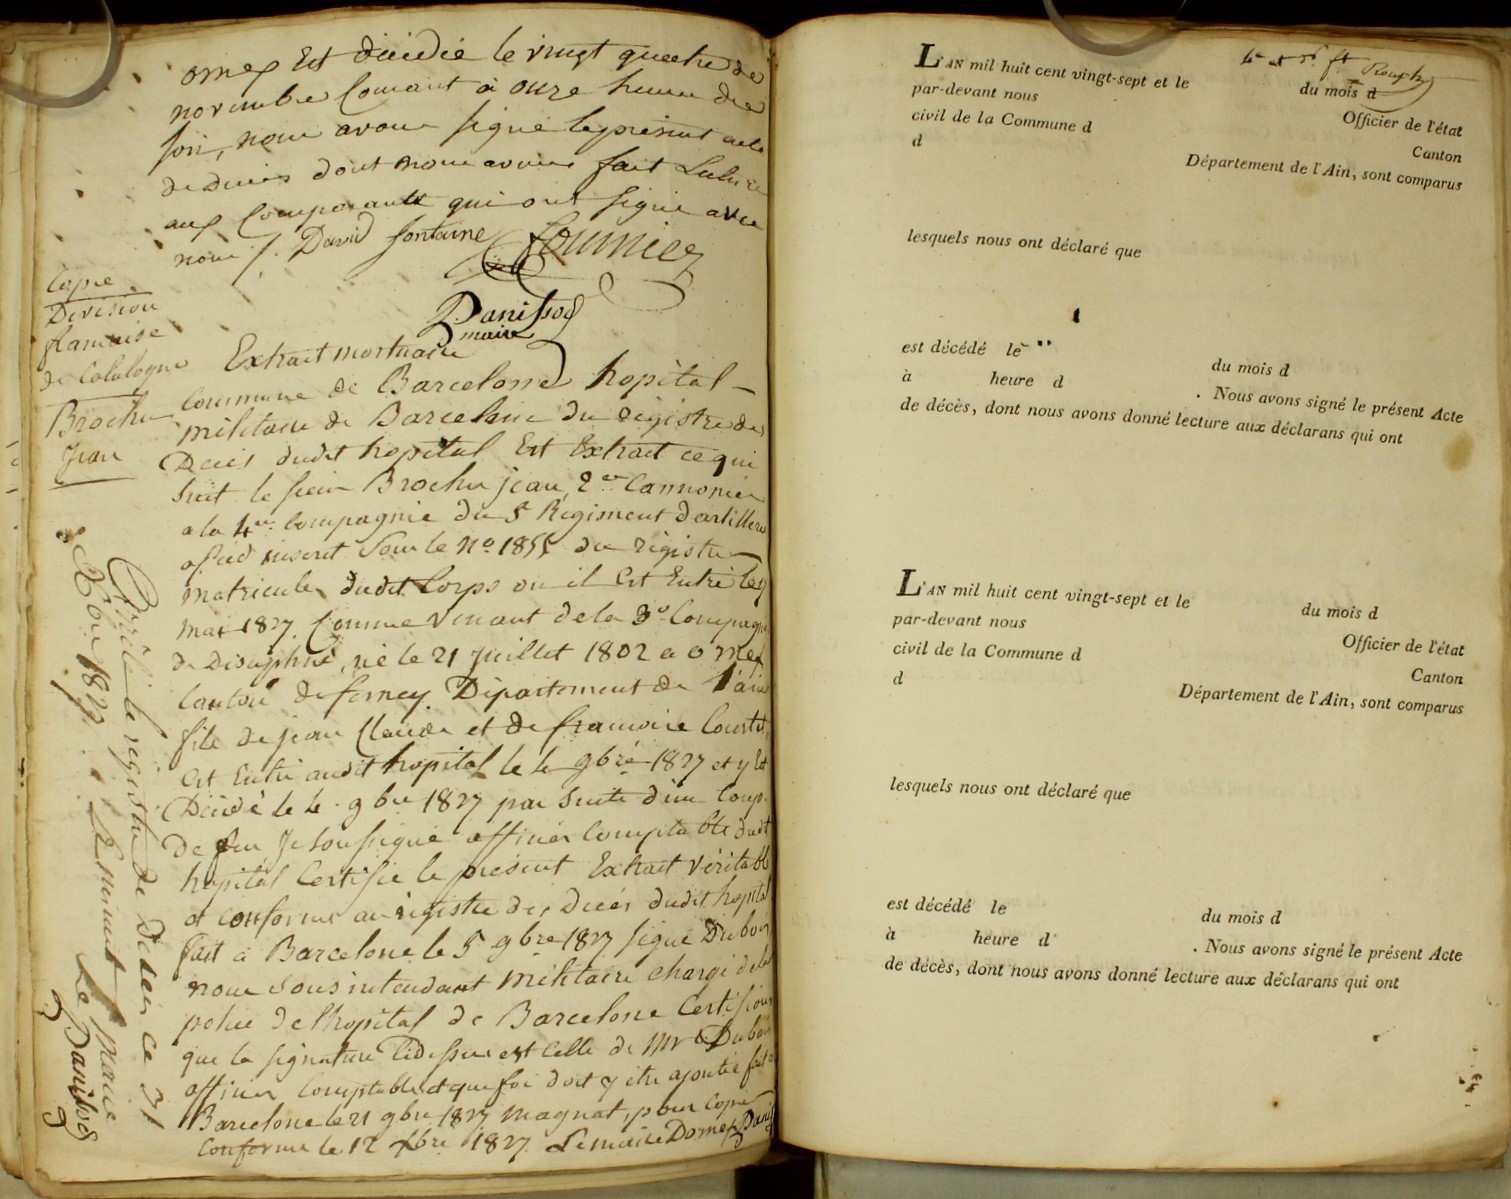 ornex Est décédé le vingt quatre de
novembre Courant à onze heure du
soir, nous avons signé le présent acte
de décès dont nous avons fait Lecture
aux Comparants qui ont signé avec
nous /. David fontaine fournier
Danissod
maire
Copie
Division
francaise
de Catalogne
Brochu
Jean
Extrait mortuaire
Commune de Barcelonne hopital
militaire de Barcelone du registre des
Décès dudit hopital Est Extrait ce qui
suit le sieur Brochu jean, 2e Cannonier
a la 4e Compagnie du 5e Regiment dartillerie
a pied inscrit sous le No 1855 du registre
matricule dudit Corps ou il Est Entré le
mai 1827 Comme venant de la 3e Compagnie
de Discipline, né le 21 Juillet 1802 a ornex
Canton de ferney Département de l'ain
fils de jean Claude et de francoise Courtet
Est Entré audit hopital le 4 9bre 1827 et y Est
Décédé le 4 9bre 1827 par Suite d'un Coup
de feu Je soussigné officier Comptable dudit
hopital Certifie le présent Extrait véritable
et conforme au registre des Décès dudit hopital
fait à Barcelone le 5 9bre 1827 signé Dubois
nous sous intendant militaire chargé de la
police de lhopital de Barcelone Certifions
que la signature Cidessus est Celle de Mr Dubois
officier comptable et que foi doit y être ajoutée fait a
Barcelone le 21 9bre 1827 magnat, pour Copie
Conforme le 12 Xbre 1827 Le maire Dornex Danissod
Clos le registre de décès ce 31
Xbre 1827 le maire
Le Danissod
4e et 5e ft
L'AN mil huit cent vingt-sept et le du mois d
par-devant nous Officier de l'état
civil de la Commune d Canton
d Département de l'Ain, sont comparus
lesquels nous ont déclaré que
est décédé le du mois d
à heure d . Nous avons signé le présent Acte
de décès, dont nous avons donné lecture aux déclarans qui ont
L'AN mil huit cent vingt-sept et le du mois d
par-devant nous Officier de l'état
civil de la Commune d Canton
d Département de l'Ain, sont comparus
lesquels nous ont déclaré que
est décédé le du mois d
à heure d . Nous avons signé le présent Acte
de décès, dont nous avons donné lecture aux déclarans qui ont